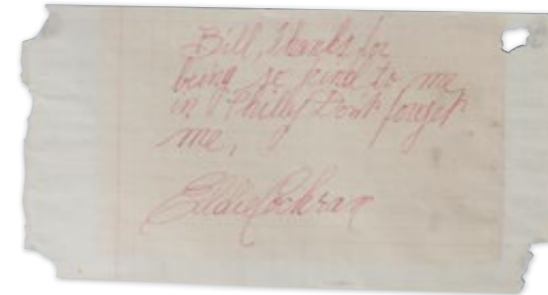 Bill, thanks for
being so kind to me
in Philly Don't forget
me,
Eddie Cochran